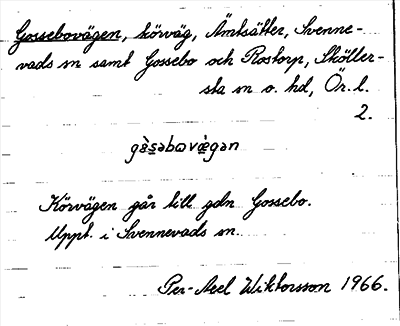 Gossebovägen, körväg, Åmtsätter, Svenne-
vads sn samt Gossebo och Rostorp, Sköller-
sta sn o. hd, Ör. l.
2.
gɛ̀s̱əbωvæ̀gən
Körvägen går till gdn Gossebo.
Uppt. i Svennevads sn.
Per-Axel Wiktorsson 1966.